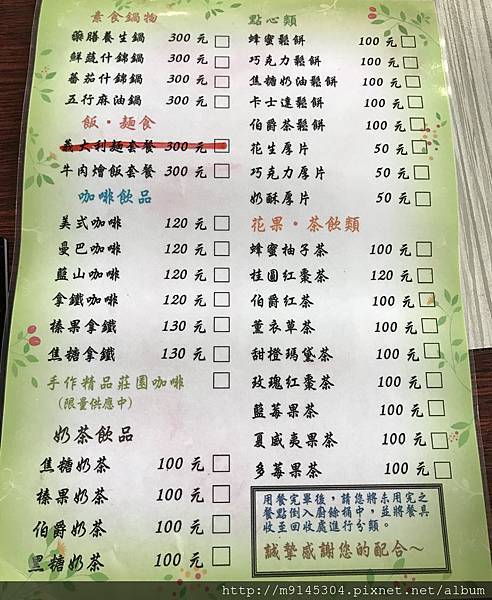 素食鍋物
藥膳養生鍋 300 元
鮮蔬什錦鍋 300 元
番茄什錦鍋 300 元
五行麻油鍋 300 元
飯・麵食
義大利麵套餐 300 元
牛肉燴飯套餐 300 元
咖啡飲品
美式咖啡 120 元
曼巴咖啡 120 元
藍山咖啡 120 元
拿鐵咖啡 120 元
榛果拿鐵 130 元
焦糖拿鐵 130 元
手作精品莊園咖啡
(限量供應中)
奶茶飲品
焦糖奶茶 100 元
榛果奶茶 100 元
伯爵奶茶 100 元
黑糖奶茶 100 元
點心類
蜂蜜鬆餅 100 元
巧克力鬆餅 100 元
焦糖奶油鬆餅 100 元
卡士達鬆餅 100 元
伯爵茶鬆餅 100 元
花生厚片 50 元
巧克力厚片 50 元
奶酥厚片 50 元
花果・茶飲類
蜂蜜柚子茶 100 元
桂圓紅棗茶 120 元
伯爵紅茶 100 元
薰衣草茶 100 元
甜橙瑪黛茶 100 元
玫瑰紅棗茶 100 元
藍莓果茶 100 元
夏威夷果茶 100 元
多莓果茶 100 元
用餐完畢後，請您將未用完之
餐點倒入廚餘桶中，並將餐具
收至回收處進行分類。
誠摯感謝您的配合～
http://m9145304.pixnet.net/album